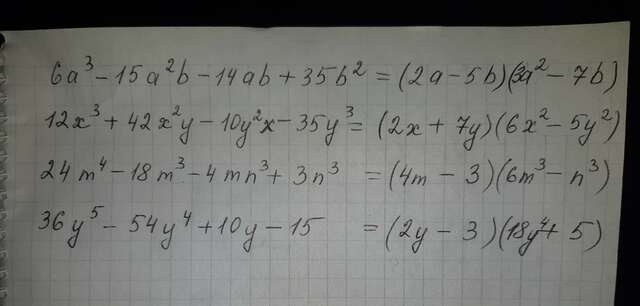 6a³ - 15a²b - 14ab + 35b² = (2a - 5b)(3a² - 7b)
12x³ + 42x²y - 10y²x - 35y³ = (2x + 7y)(6x² - 5y²)
24m⁴ - 18m³ - 4mn³ + 3n³ = (4m - 3)(6m³ - n³)
36y⁵ - 54y⁴ + 10y - 15 = (2y - 3)(18y⁴ + 5)